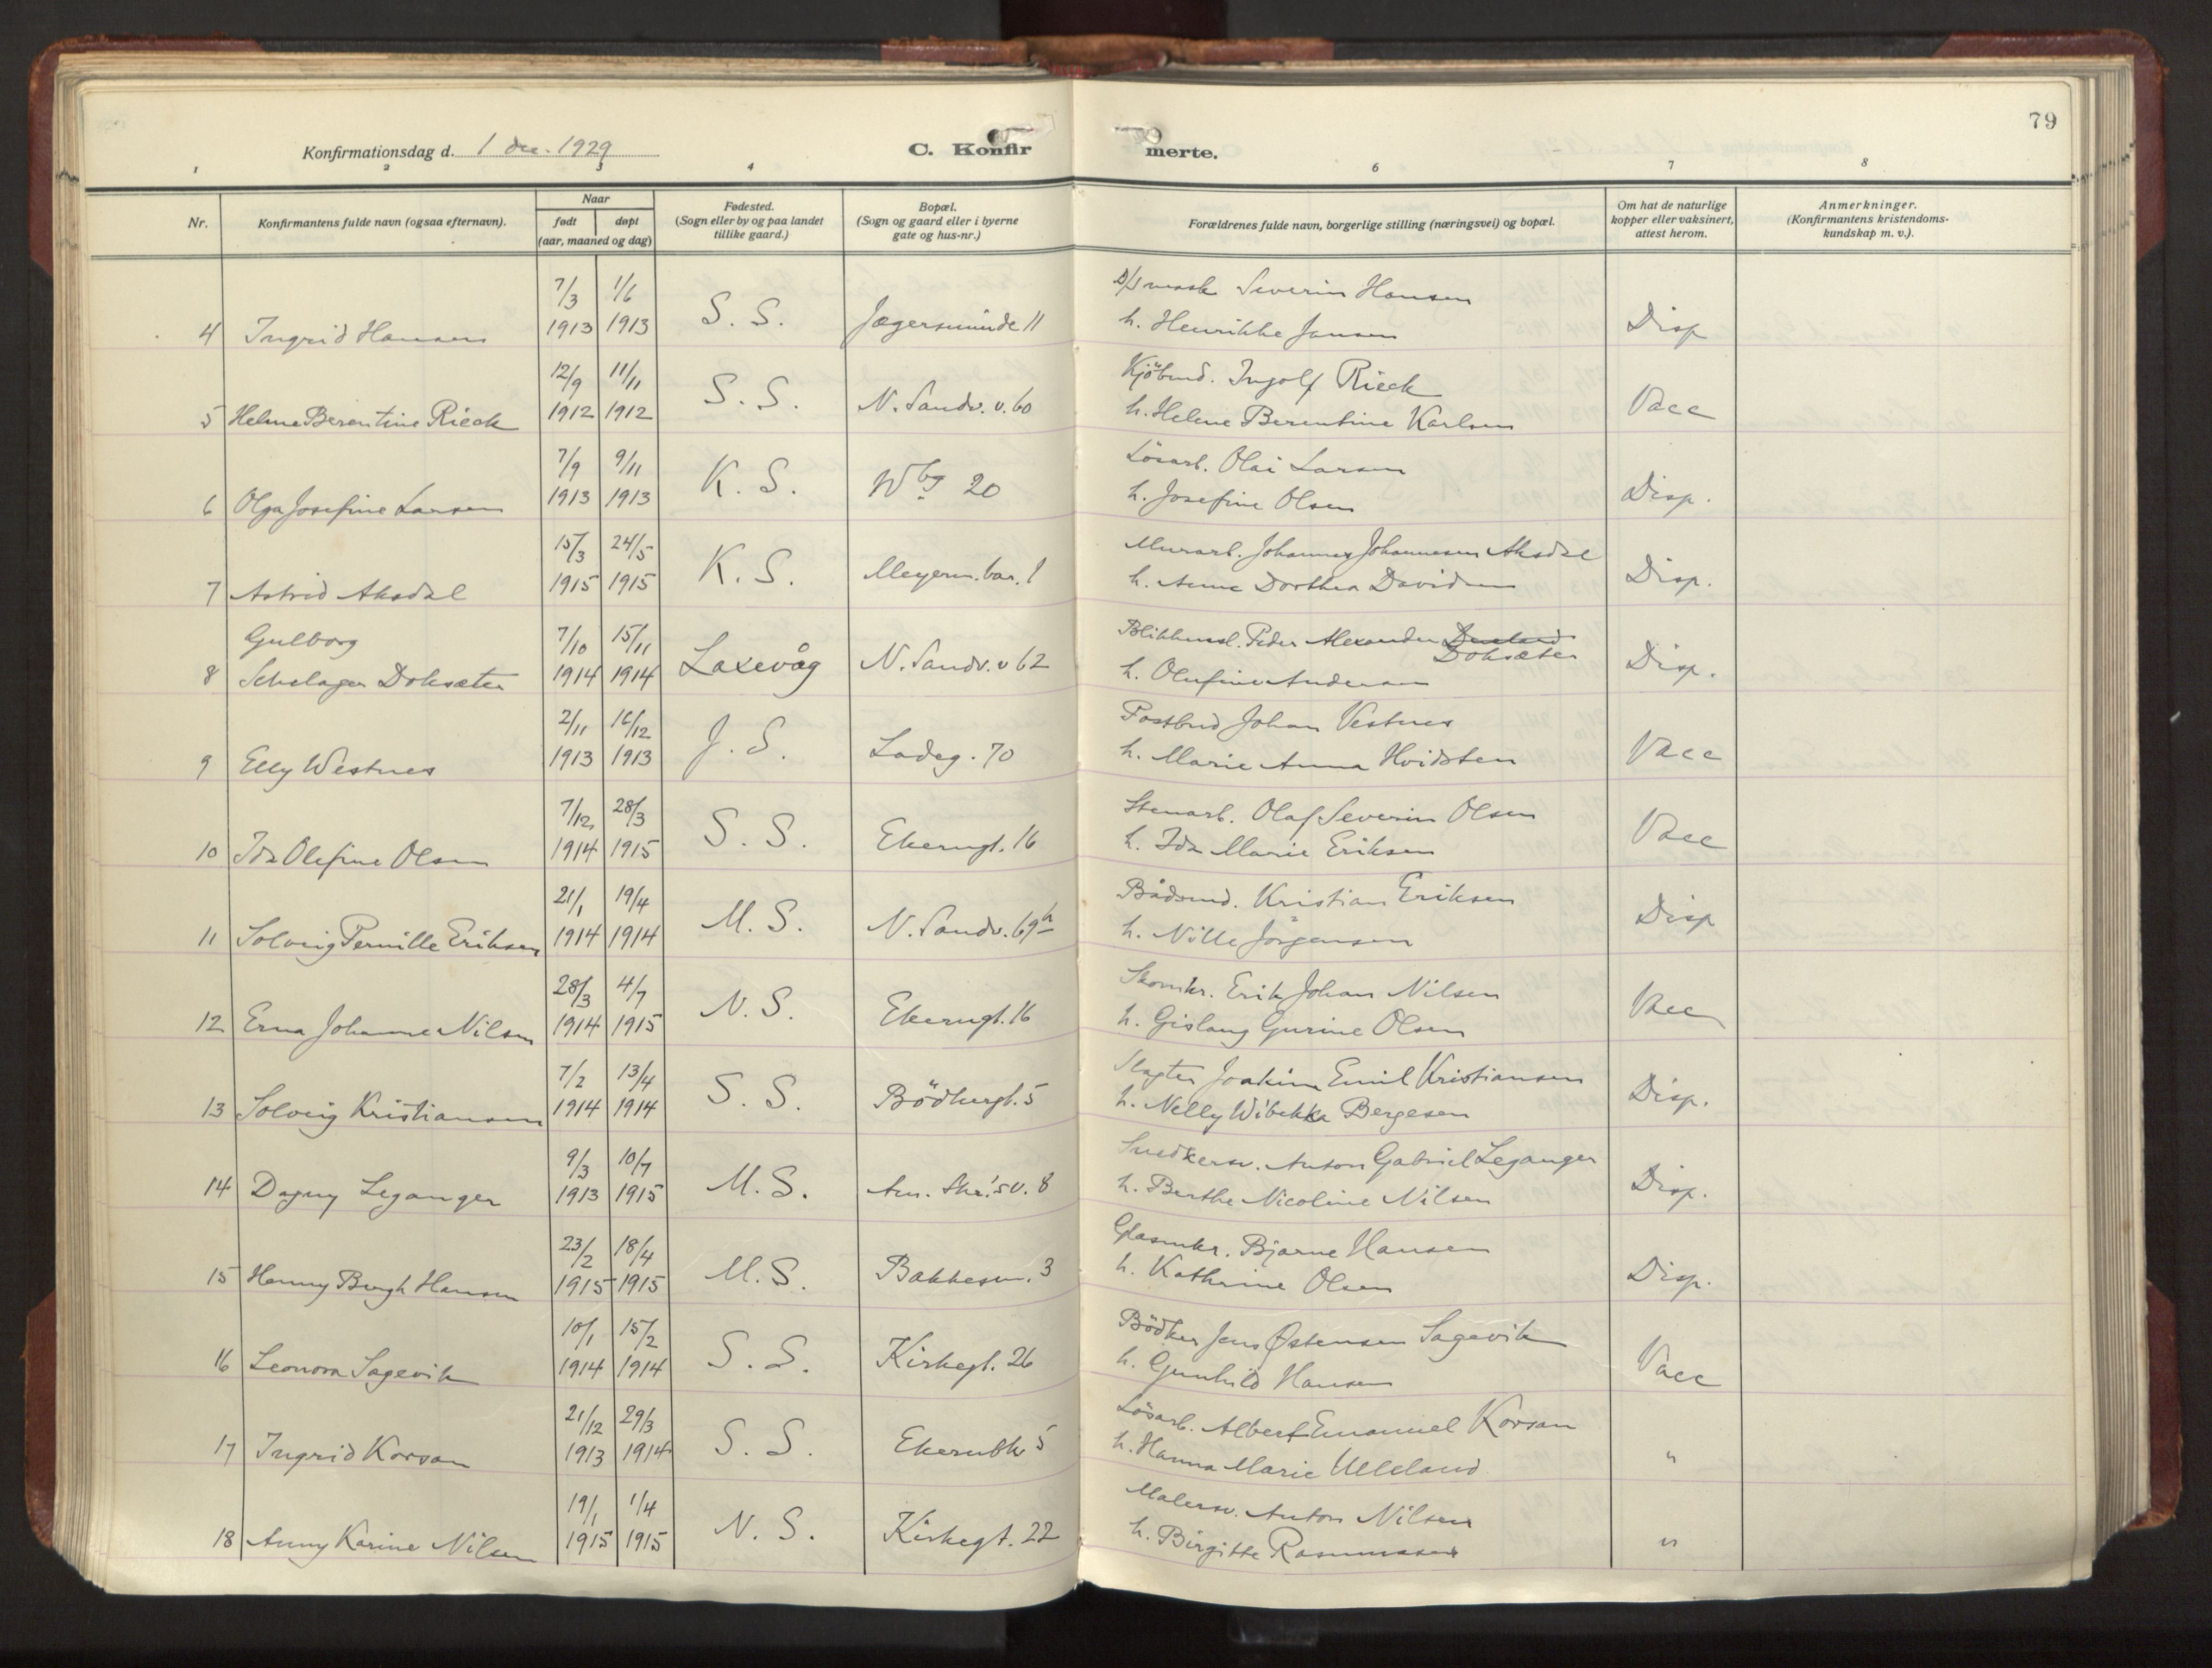 79
Konfirmationsdag d. 1 dec. 1929
C. Konfirmerte.
1 2 3 4 6 7 8
Nr.
Konfirmantens fulde navn (ogsaa efternavn).
Naar
født døpt
(aar, maaned og dag)
Fødested.
(Sogn eller by og paa landet
tillike gaard.)
Bopæl.
(Sogn og gaard eller i byerne
gate og hus-nr.)
Forældrenes fulde navn, borgerlige stilling (næringsvei) og bopæl.
Om hat de naturlige
kopper eller vaksinert,
attest herom.
Anmerkninger.
(Konfirmantens kristendoms-
kundskap m. v.).
7/3 1/6 D/S mask Severin Hansen
4 Ingrid Hansen 1913 1913 S. S. Jægersminde 11 h. Henrikke Jansen Disp
12/9 11/11 Kjöbmd. Ingolf Rieck
5 Helene Berentine Rieck 1912 1912 S. S. N. Sandv. v. 60 h. Helene Berentine Karlsen Vacc
7/9 9/11 Lösarb. Olai Larsen
6 Olga Josefine Larsen 1913 1913 K. S. Wbg 20 h. Josefine Olsen Disp.
15/3 24/5 Murarb. Johannes Johannesen Aksdal
7 Astrid Aksdal 1915 1915 K. S. Meyerm. bar. 1 h. Anne Dorthea Davidsen Disp.
Gulborg 7/10 15/11 Blikkensl. Peder Alexander Doksæter
8 Schelager Doksæter 1914 1914 Laxevåg N. Sandv. v 62 h. Olufine Andersen Disp.
2/11 16/12 Postbud Johan Vestnes
9 Elly Westnes 1913 1913 J. S. Ladeg. 70 h. Marie Anna Hvidsten Vacc
7/12 28/3 Stenarb. Olaf Severin Olsen
10 Ida Olefine Olsen 1914 1915 S. S. Ekerngt. 16 h. Ida Marie Eriksen Vacc
21/1 19/4 Bådsmd. Kristian Eriksen
11 Solveig Pernille Eriksen 1914 1914 M. S. N. Sandv. 69 h. Nille Jörgensen Disp
28/3 4/7 Skomkr. Erik Johan Nilsen
12 Erna Johanne Nilsen 1914 1915 N. S. Ekerngt. 16 h. Gislaug Gurine Olsen Vacc
7/2 13/4 Slagter Joakim Emil Kristiansen
13 Solveig Kristiansen 1914 1914 S. S. Bödkergt. 5 h. Nelly Wibekka Bergesen Disp.
9/3 10/7 Snedkersv. Anton Gabriel Leganger
14 Dagny Leganger 1913 1915 M. S. Am. Skr.'s v. 8 h. Berthe Nicoline Nilsen Disp.
23/2 18/4 Glasmkr. Bjarne Hansen
15 Henny Bergh Hansen 1915 1915 M. S. Bakkesm. 3 h. Kathrine Olsen Disp.
10/1 15/2 Bödker Jens Østensen Sagevik
16 Leonora Sagevik 1914 1914 S. S. Kirkegt. 26 h. Gunhild Hansen Vacc
21/12 29/3 Lösarb. Albert Emanuel Korsan
17 Ingrid Korsan 1913 1914 S. S. Ekernbk 5 h. Hanna Marie Ulleland "
19/1 1/4 Malersv. Anton Nilsen
18 Anny Karine Nilsen 1915 1915 N. S. Kirkegt. 22 h. Birgitte Rasmussen "